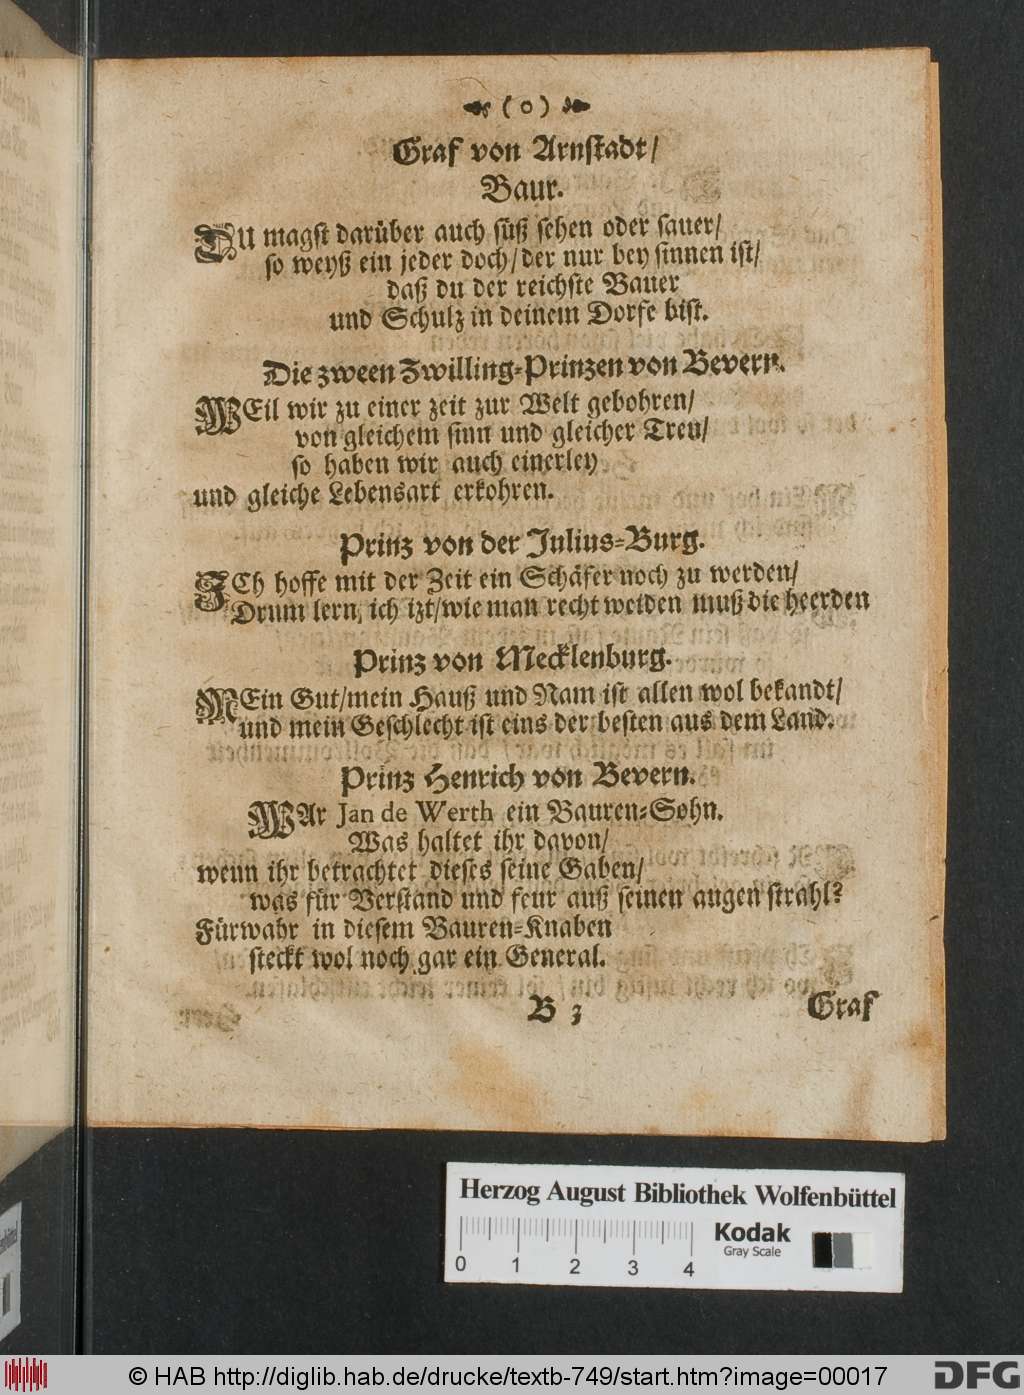 (o)
Graf von Arnſtadt/
Baur.
DU magſt darüber auch ſüß ſehen oder ſauer/
ſo weyß ein jeder doch/ der nur bey ſinnen iſt/
daß du der reichſte Bauer
und Schulz in deinem Dorfe biſt.
Die zween Zwilling-Prinzen von Bevern.
WEil wir zu einer zeit zur Welt gebohren/
von gleichem ſinn und gleicher Treu/
ſo haben wir auch einerley
und gleiche Lebensart erkohren.
Prinz von der Julius-Burg.
ICh hoffe mit der Zeit ein Schäfer noch zu werden/
Drum lern, ich izt/ wie man recht weiden muß die heerden
Prinz von Mecklenburg.
MEin Gut/ mein Hauß und Nam iſt allen wol bekandt/
und mein Geſchlecht iſt eins der beſten aus dem Land.
Prinz Henrich von Bevern.
WAr Jan de Werth ein Bauren-Sohn.
Was haltet ihr davon/
wenn ihr betrachtet dieſes ſeine Gaben/
was für Verſtand und feur auß ſeinen augen ſtrahl?
Fürwahr in dieſem Bauren-Knaben
ſteckt wol noch gar ein General.
B 3 Graf
Herzog August Bibliothek Wolfenbüttel
Kodak
Gray Scale
0 1 2 3 4
© HAB http://diglib.hab.de/drucke/textb-749/start.htm?image=00017
DFG